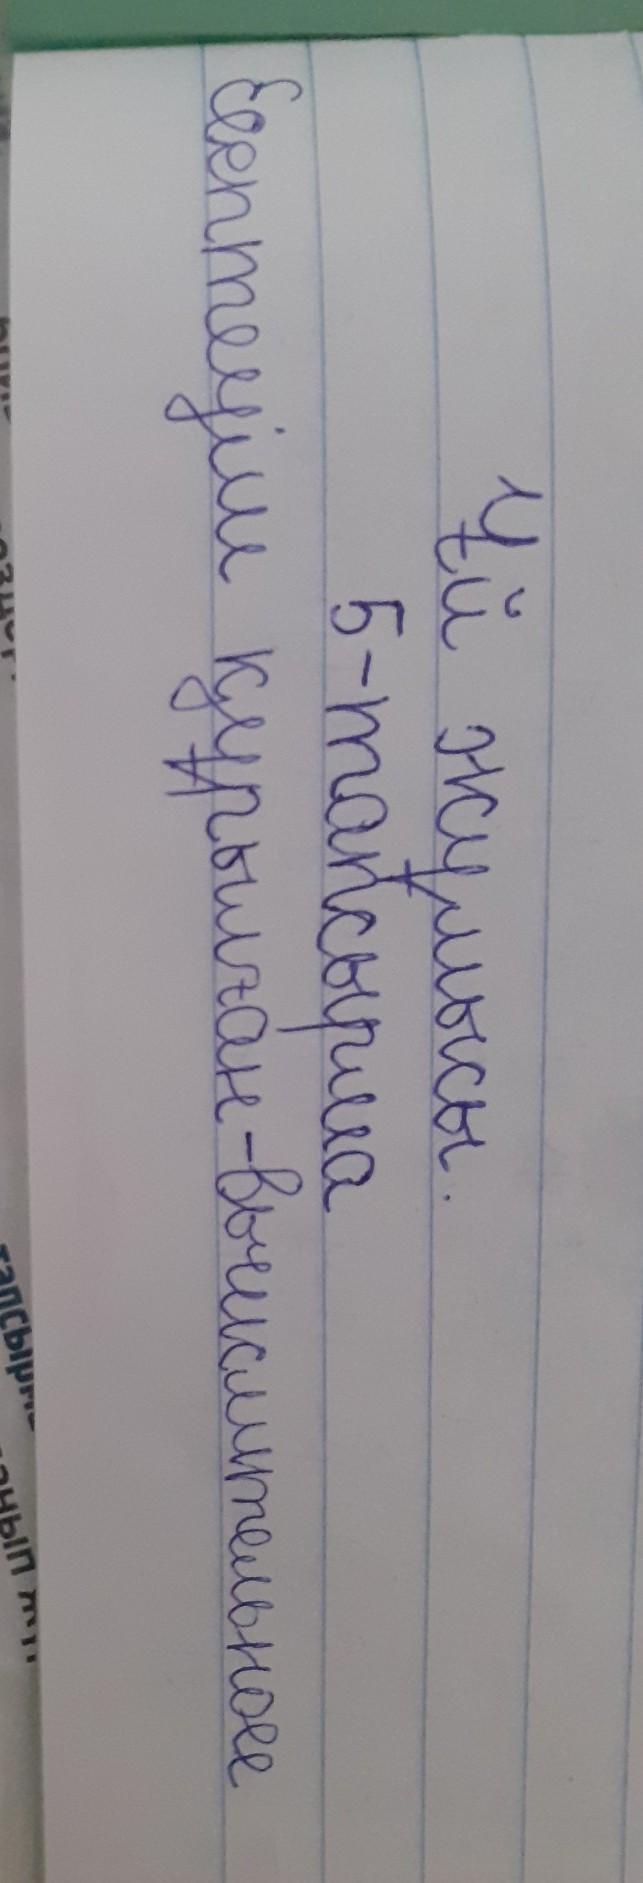 Үй жұмысы.
5-тапсырма
Есептеуіш құрылған-вычислительное
тапсырма